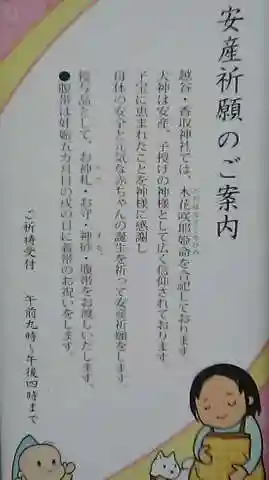 安産祈願のご案内
越谷・香取神社では、木花咲耶姫命を合祀しております
大神は安産、子授けの神様として広く信仰されております
子宝に恵まれたことを神様に感謝し
母体の安全と元気な赤ちゃんの誕生を祈って安産祈願をします。
授与品として、お神札・お守・神砂・腹帯をお渡しいたします。
●腹帯は妊娠五カ月目の戌の日に着帯のお祝いをします。
ご祈祷受付 午前九時~午後四時まで